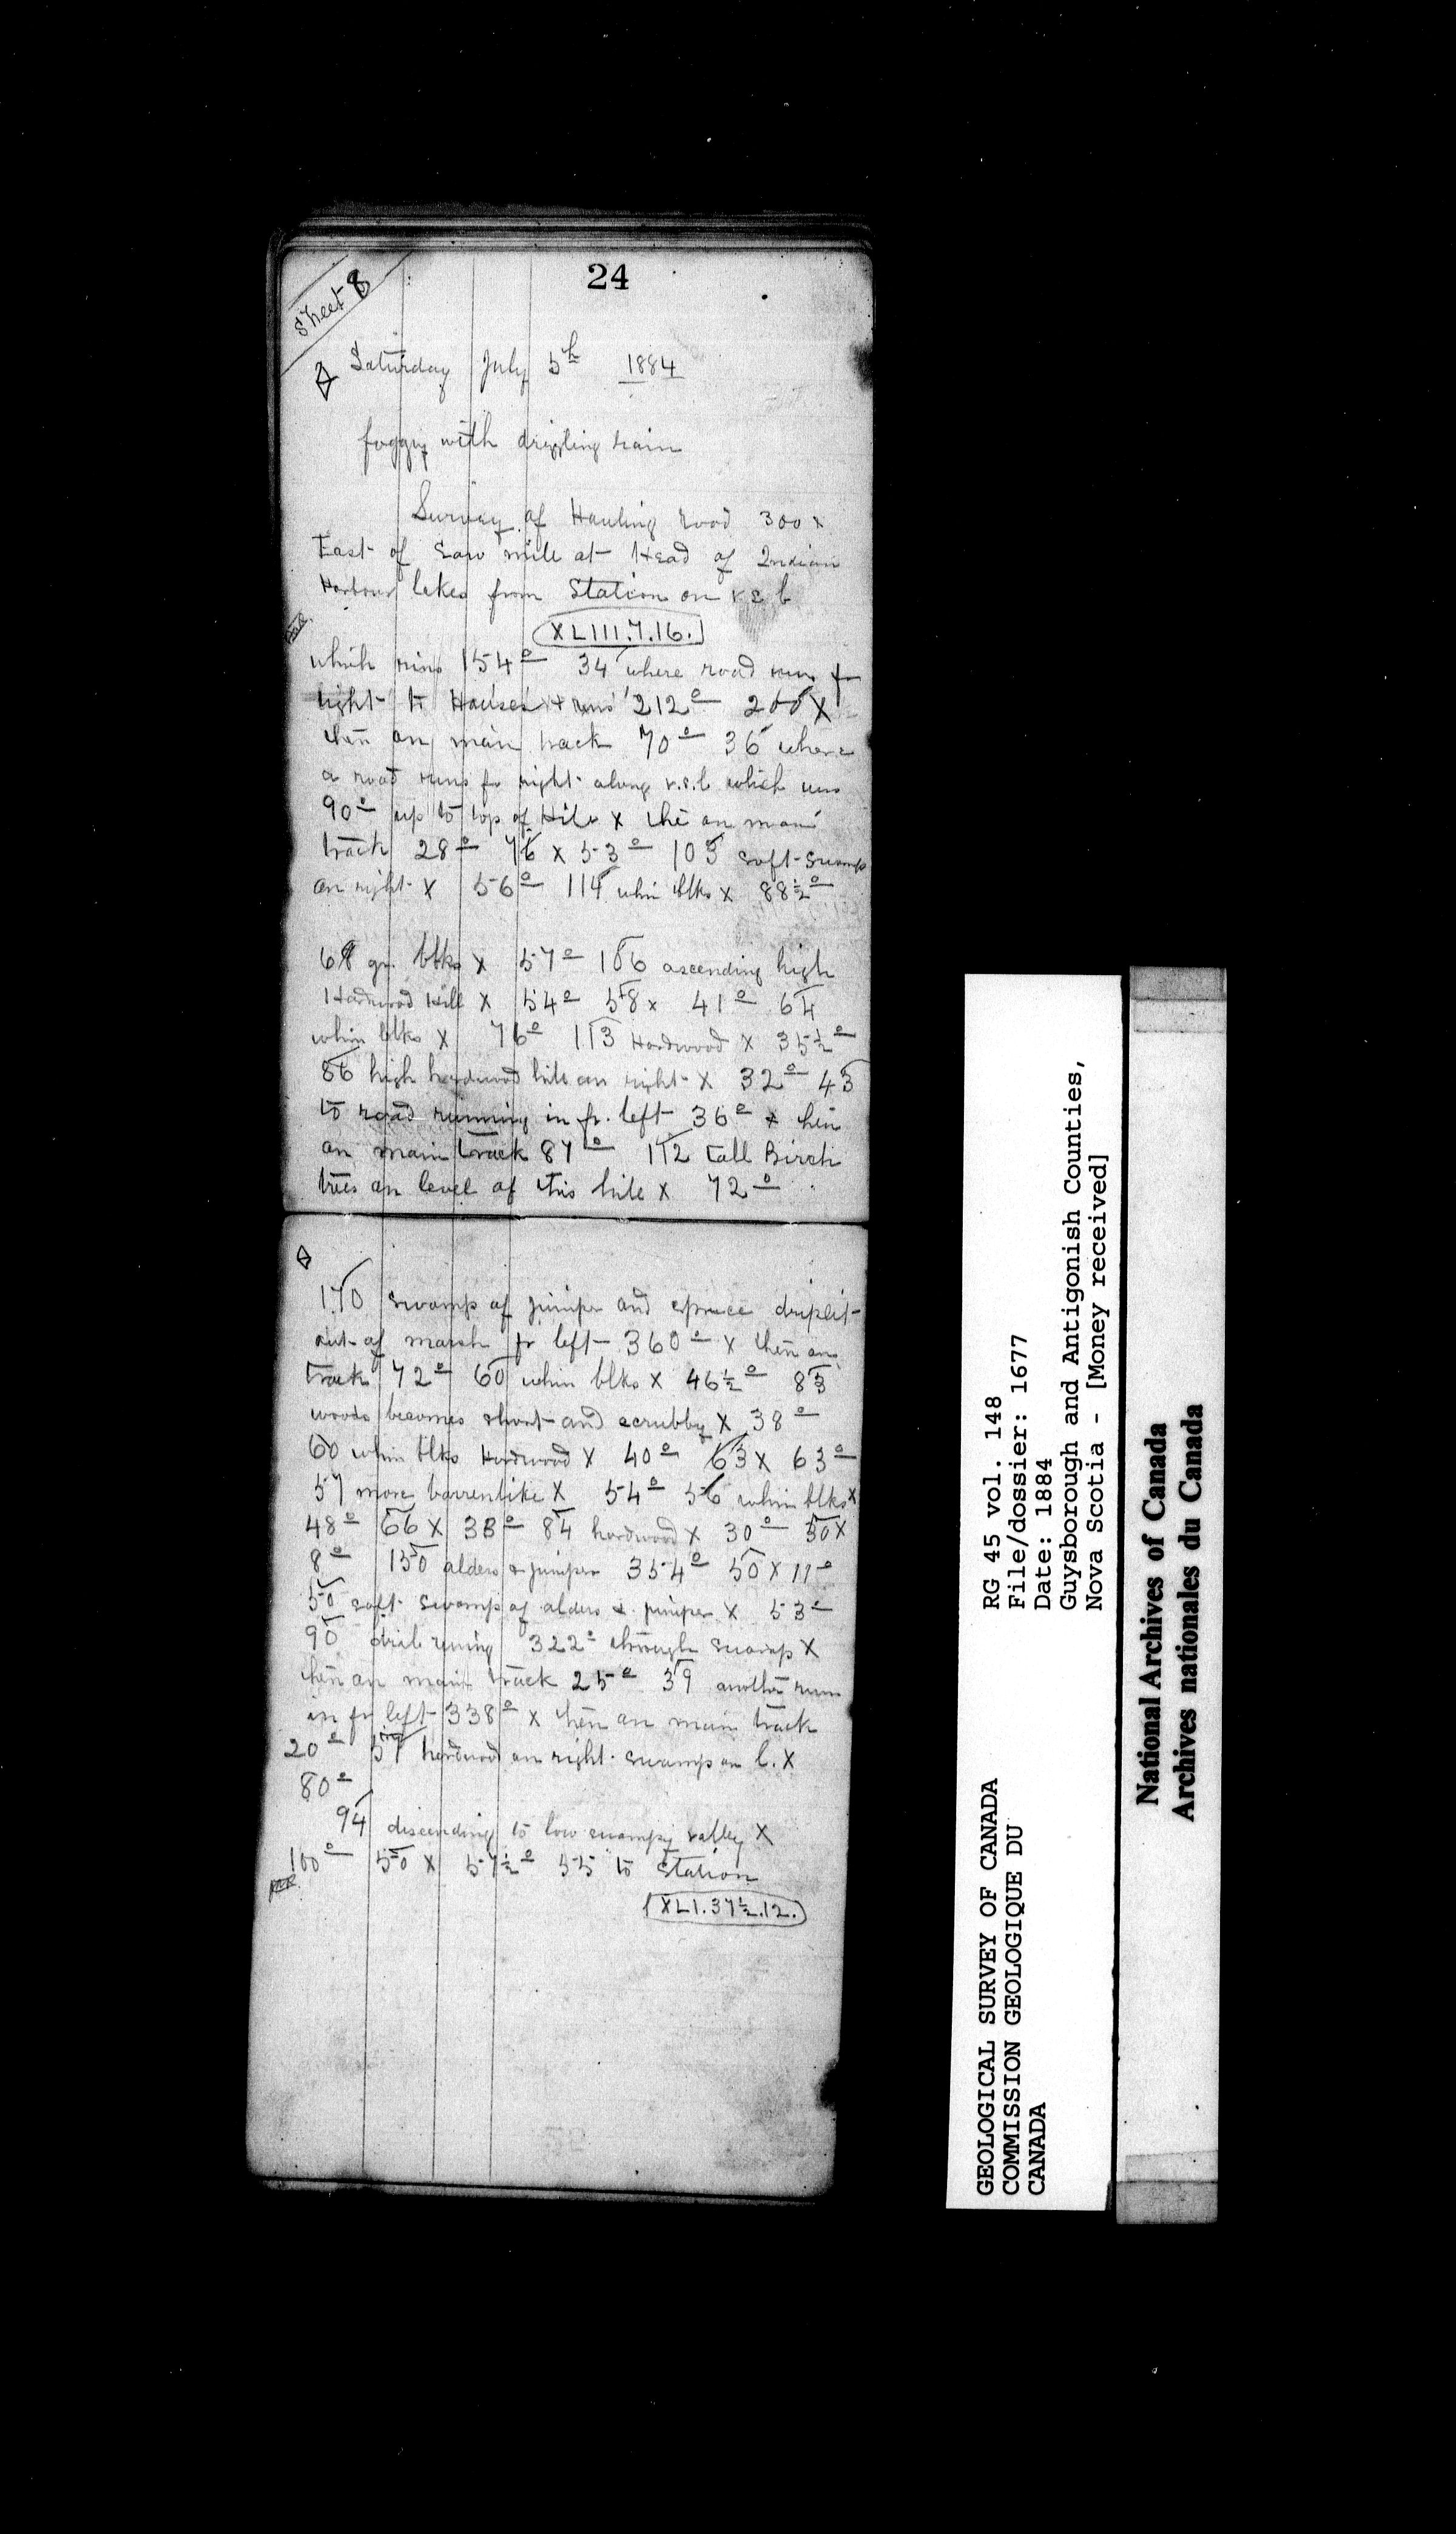 24
Sheet 8
Saturday July 5th 1884
foggy with drizzling rain
Survey of Hauling road 300 x
East of Saw mill at Head of Indian
Harbour lakes from Station on r s l
XLIII.7.16.
which runs 154° 34 where road runs fr
right to Houses & runs 212° 200 X
then on main track 70° 36 where
a road runs fr right along r.s.l which runs
90° up to top of Hill x then on main
track 28° 76 x 53° 103 soft swamp
on right x 56° 114 whin blks x 88½°
68 gr. blks x 57° 106 ascending high
Hardwood Hill x 54° 58 x 41° 64
whin blks x 76° 113 Hardwood x 35½°
86 high hardwood hill on right x 32° 43
to road running in fr. left 36° x then
on main track 87° 112 tall Birch
trees on level of this hill x 72°
170 swamp of juniper and spruce
out of marsh fr left 360° x then on
track 72° 60 whin blks x 46½° 83
woods becomes short and scrubby x 38°
60 whin blks Hardwood x 40° 63 x 63°
57 more barrenlike x 54° 56 whin blks x
48° 66 x 33° 84 hardwood x 30° 50 x
8° 150 alders & juniper 354° 50 x 11°
50 soft swamp of alders & juniper x 53°
90 runing 322° through swamp x
then on main track 25° 39 another runs
in fr left 338° x then on main track
20° 57 hardwood on right swamp on l. x
80°
94 discending to low swampy valley x
100° 50 x 57½° 55 to Station
XLI.37½.12.
GEOLOGICAL SURVEY OF CANADA
COMMISSION GEOLOGIQUE DU
CANADA
RG 45 vol. 148
File/dossier: 1677
Date: 1884
Guysborough and Antigonish Counties,
Nova Scotia - [Money received]
National Archives of Canada
Archives nationales du Canada